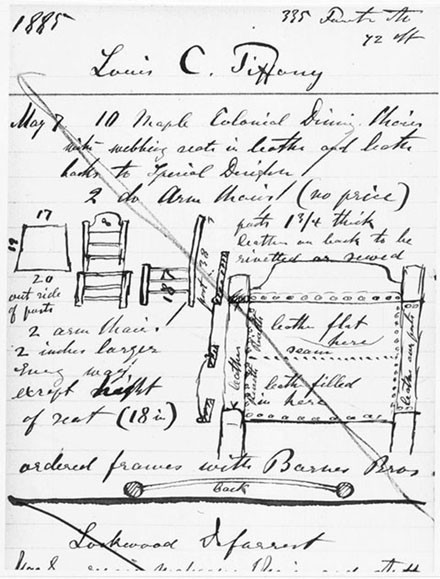 1885
335 Fourth Av
72 off
Louis C. Tiffany
May 7 10 Maple Colonial Dining Chairs
with webbing seats in leather and leather
backs to Special Design
2 do Arm Chairs (no price)
posts 1 3/4 thick
leather on back to be
rivetted or sewed
17
19
20
out side
of posts
18
post 38
2 arm chairs
2 inches larger
Every way
except height
of seat (18 in)
leather flat
here
seam
leath filled
in here
leather
leather on post
ordered frames with Barnes Bros
back
Lockwood Deforest